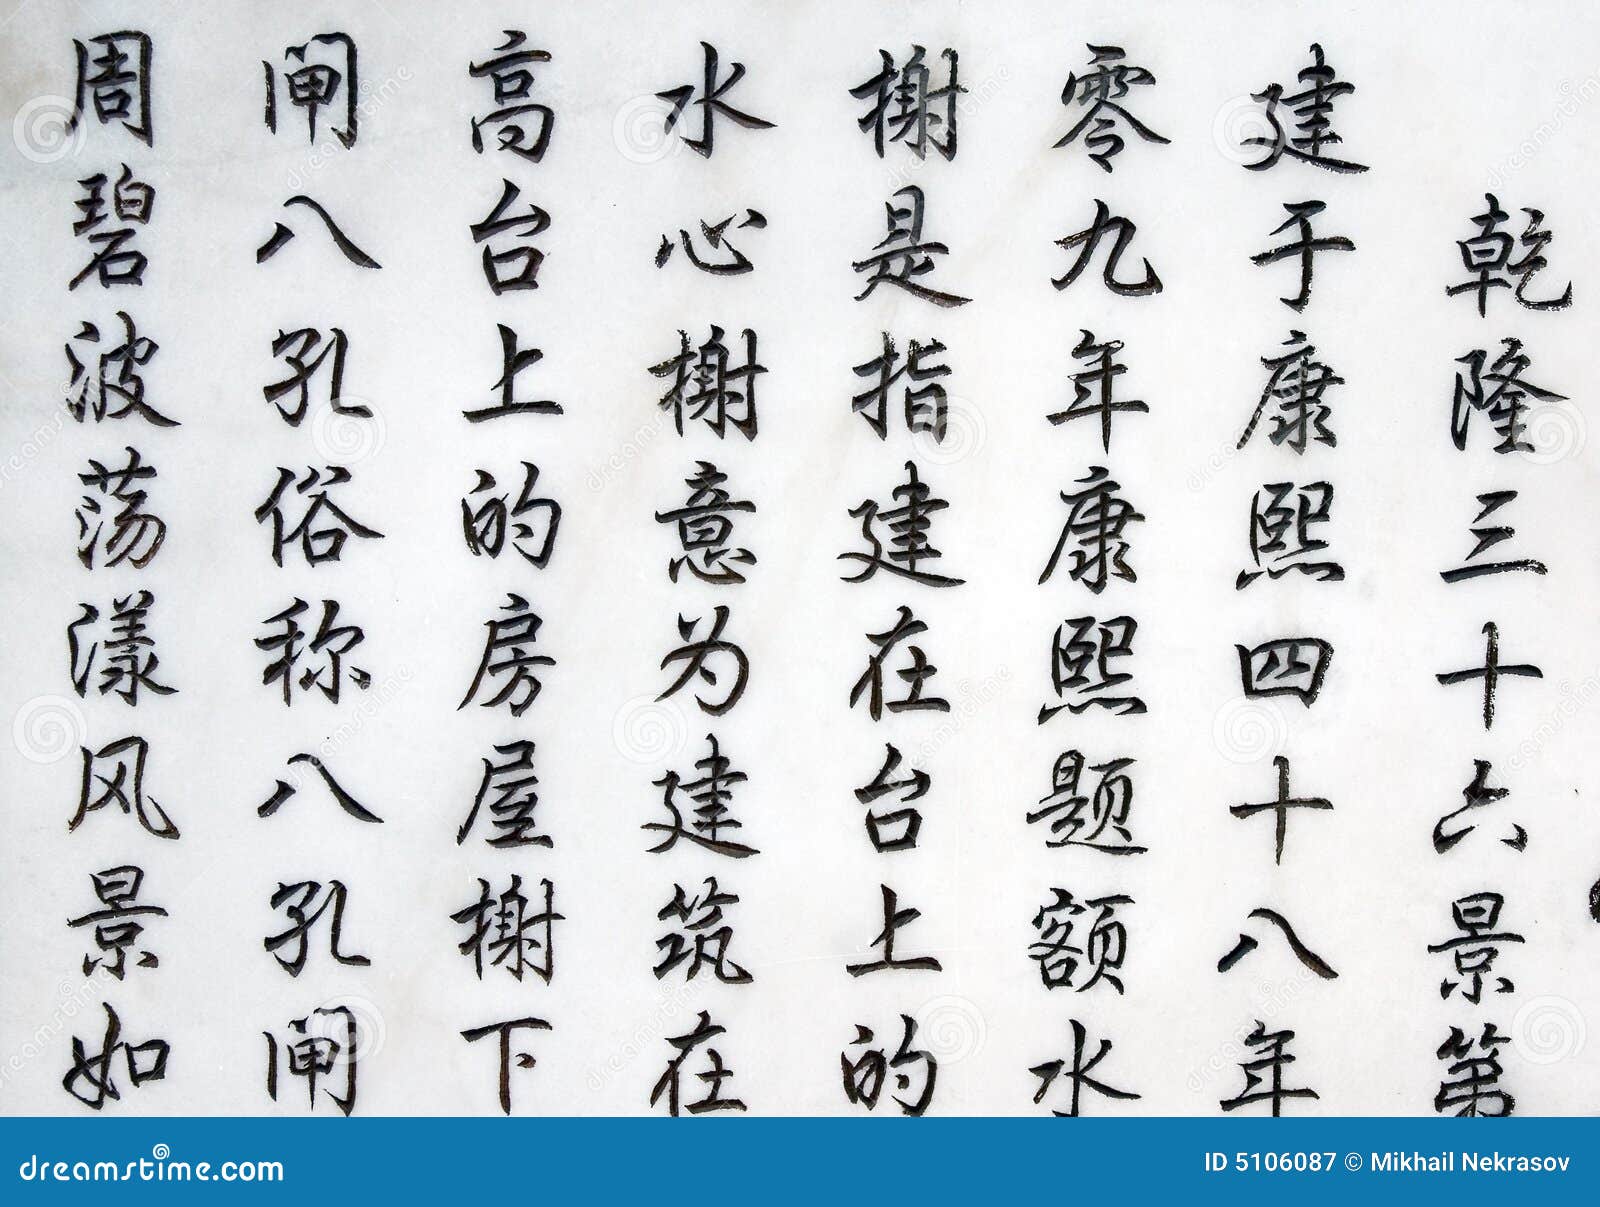 乾隆三十六景第
建于康熙四十八年
零九年康熙题额水
榭是指建在台上的
水心榭意为建筑在
高台上的房屋榭下
闸八孔俗称八孔闸
周碧波荡漾风景如
dreamstime.com
ID 5106087 © Mikhail Nekrasov